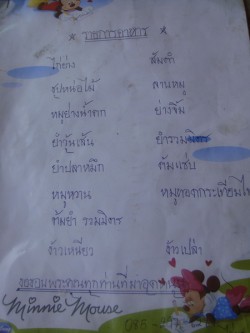 * รายการอาหาร *
ไก่ย่าง ส้มตำ
ซุปหน่อไม้ ลาบหมู
หมูย่างน้ำตก ย่างจิ้ม
ยำวุ้นเส้น ยำรวมมิตร
ยำปลาหมึก ต้มแซ่บ
หมูหวาน หมูทอดกระเทียม
ต้มยำ รวมมิตร
ข้าวเหนียว ข้าวเปล่า
ขอขอบพระคุณทุกท่านที่มาอุดหนุน
Minnie Mouse